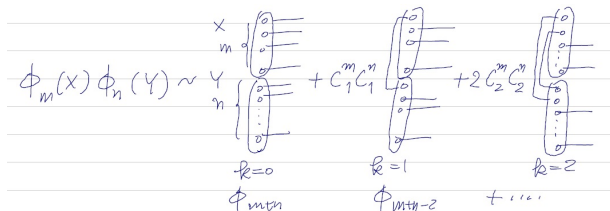 X
m
ϕ_m(X) ϕ_n(Y) ~ Y + C_1^m C_1^n + 2 C_2^m C_2^n
n
k=0 k=1 k=2
ϕ_{m+n} ϕ_{m+n-2} + ....